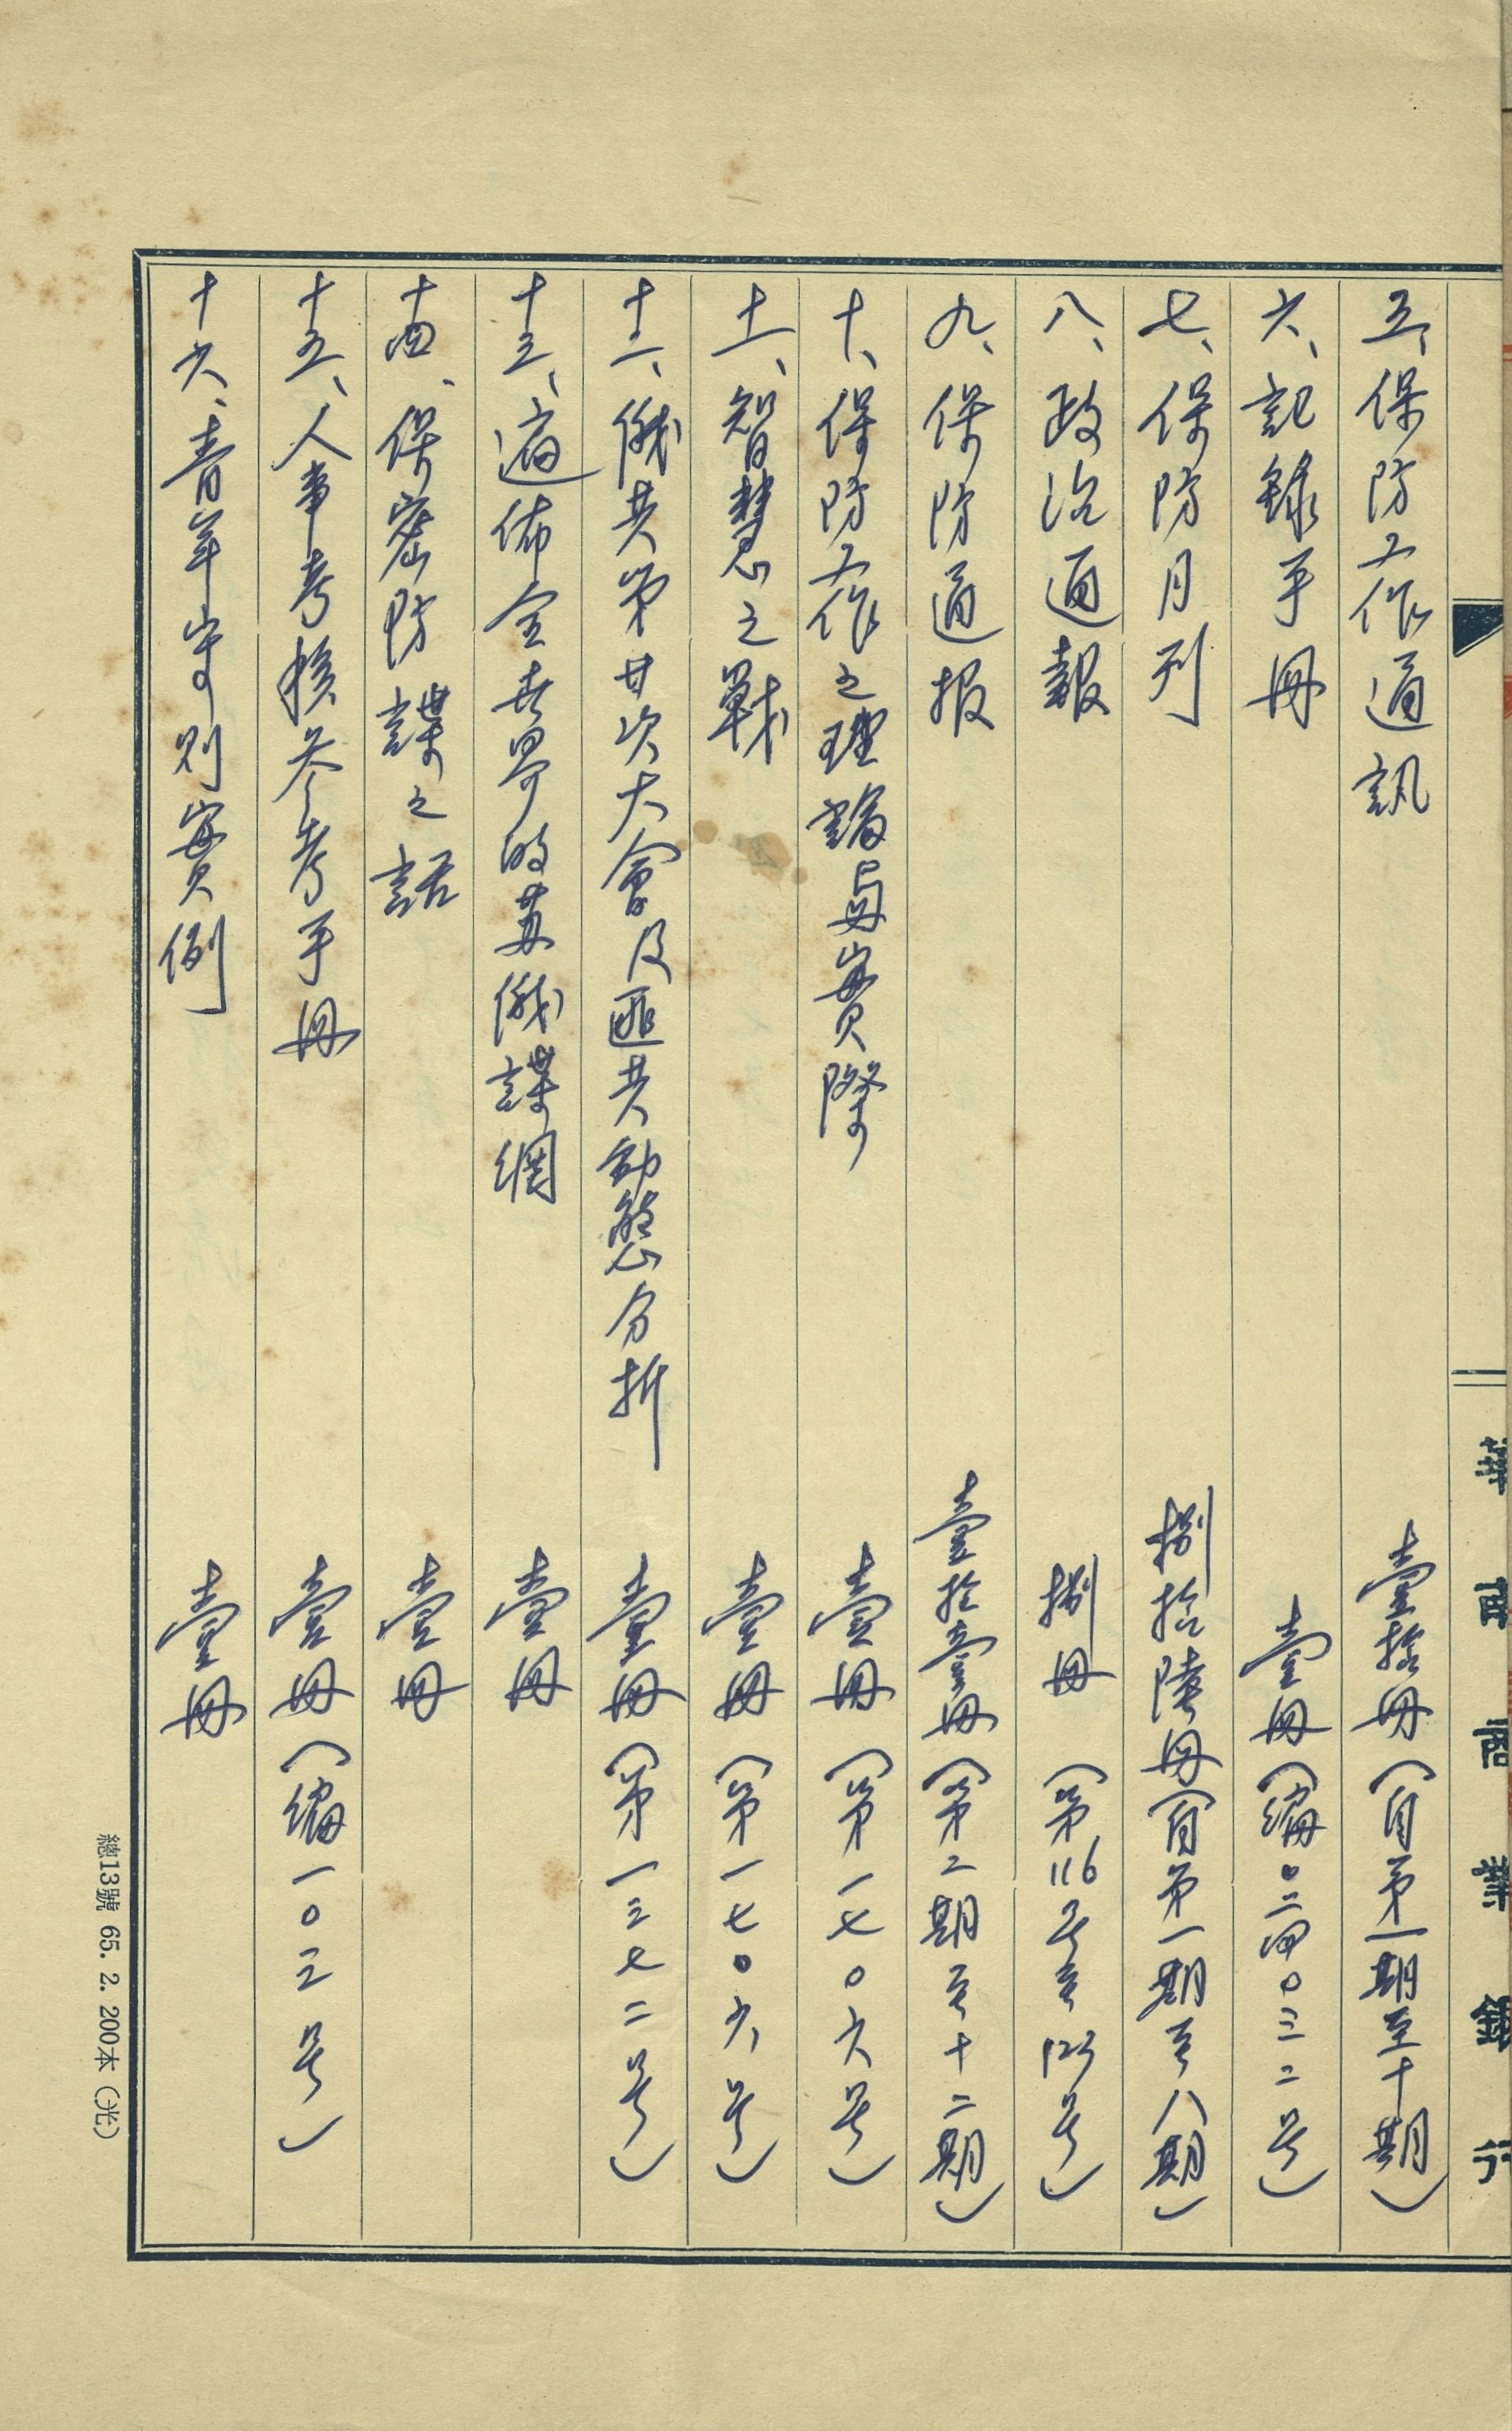 五、保防工作通訊 壹拾册(自第一期至十期)
六、記錄手册 壹册(編0二四0三二号)
七、保防月刊 捌拾陸册(自第一期至八期)
八、政治通報 捌册 (第116号至123号)
九、保防通报 壹拾壹册(第二期至十二期)
十、保防工作之理論与實際 壹册(第一七0六号)
十一、智慧之戰 壹册(第一七0六号)
十二、俄共第廿次大會及匪共動態分析 壹册(第一三七二号)
十三、遍佈全世界的苏俄諜網 壹册
十四、保密防諜之話 壹册
十五、人事考核参考手册 壹册(編一0三号)
十六、青年守則實例 壹册
總13號 65. 2. 200本(光)